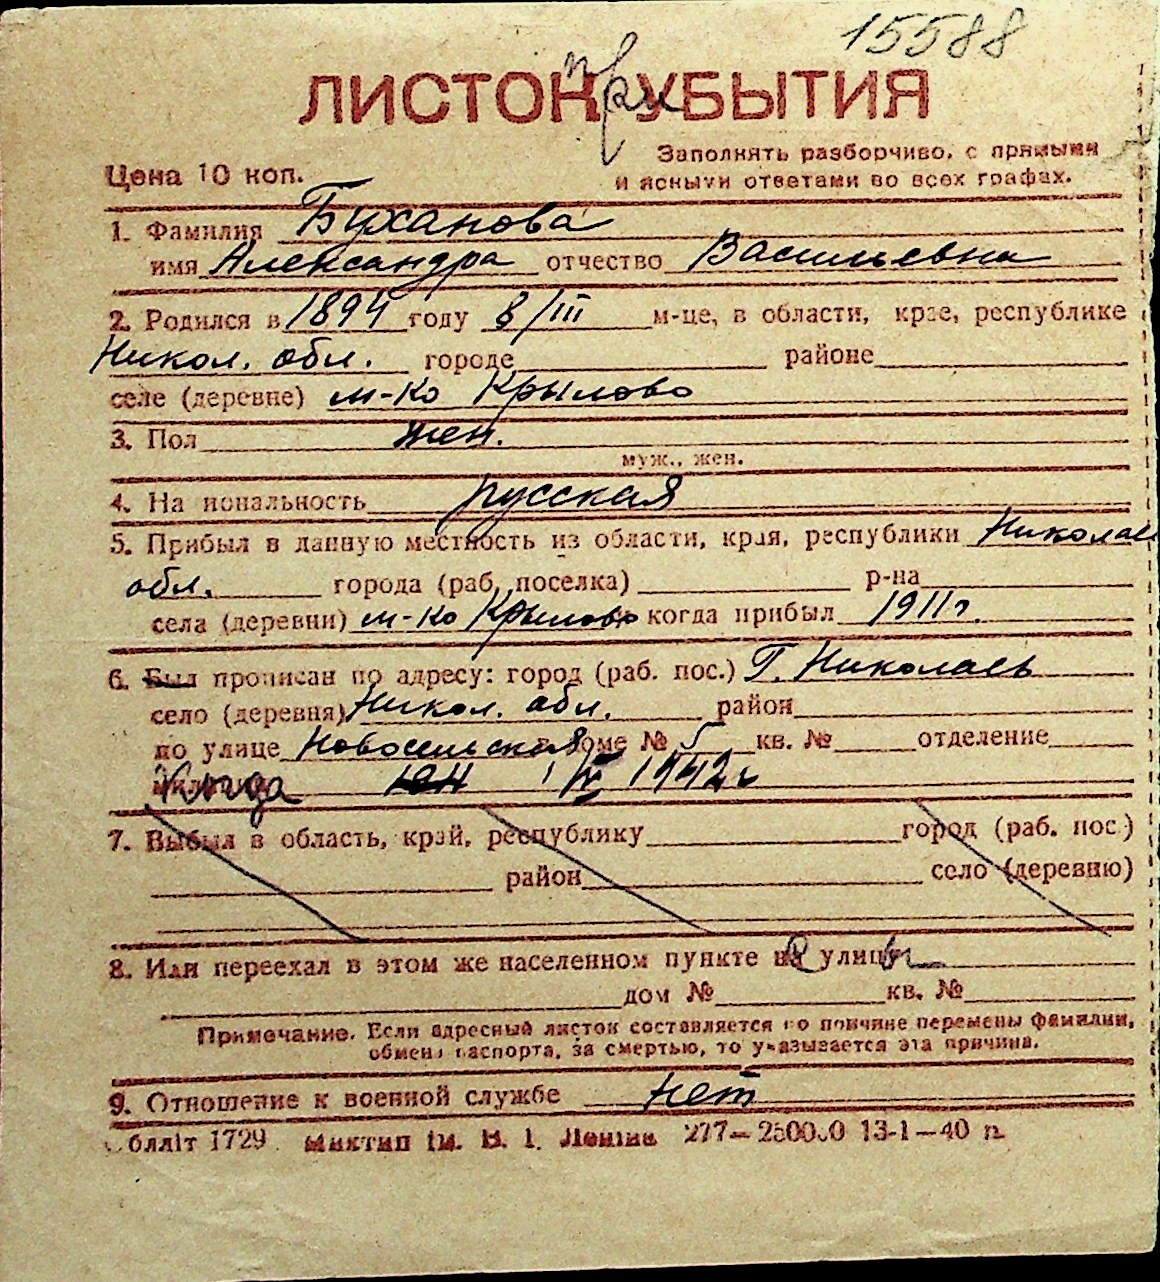 15588
ЛИСТОК при УБЫТИЯ
Заполнять разборчиво, с прямыми
и ясными ответами во всех графах.
Цена 10 коп.
1. Фамилия Буханова
имя Александра отчество Васильевна
2. Родился в 1894 году 8/III м-це, в области, крае, республике
Никол. обл. городе районе
селе (деревне) м-ко Крылово
3. Пол жен.
муж., жен.
4. На иональность русская
5. Прибыл в данную местность из области, края, республики Николаев
обл. города (раб. поселка) р-на
села (деревни) м-ко Крылово когда прибыл 1911 г.
6. Был прописан по адресу: город (раб. пос.) Г. Николаев
село (деревня) Никол. обл. район
по улице Новосельская доме № 5 кв. № отделение
Когда 1942 г
7. Выбыл в область, край, республику город (раб. пос.)
район село (деревню)
8. Или переехал в этом же населенном пункте улицы
дом № кв. №
Примечание. Если адресный листок составляется по причине перемены фамилии,
обмена паспорта, за смертью, то указывается эта причина.
9. Отношение к военной службе нет
Обллiт 1729 Миктип iм. В. I. Ленiна 277— 250000 13-1—40 п.